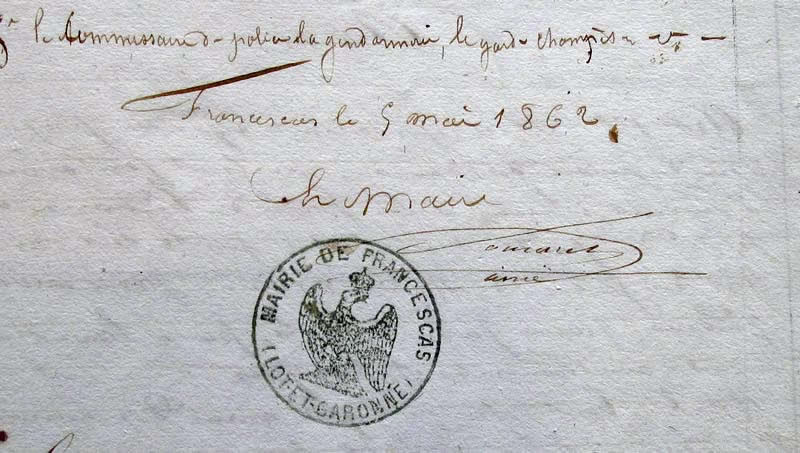 le Commissaire de police la gendarmerie, le garde champêtre
Francescas le 5 mai 1862
Le Maire
ainé
MAIRIE DE FRANCESCAS
(LOT-ET-GARONNE)